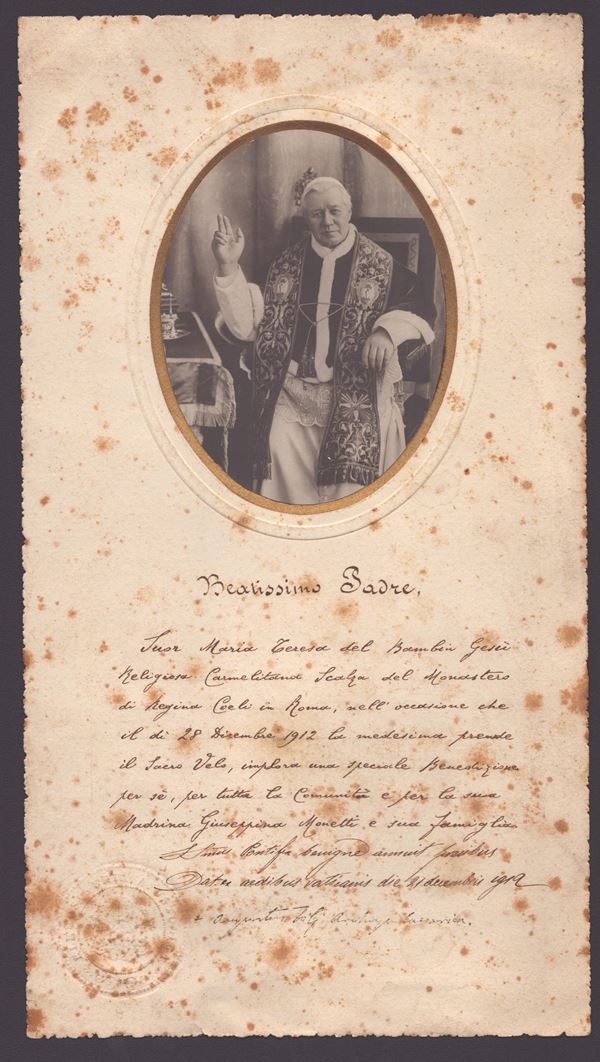 Beatissimo Padre,
Suor Maria Teresa del Bambin Gesù
Religiosa Carmelitana Scalza del Monastero
di Regina Coeli in Roma, nell'occasione che
il dì 28 Dicembre 1912 la medesima prende
il Sacro Velo, implora una speciale Benedizione
per sè, per tutta la Comunità e per la sua
Madrina Giuseppina Monetti e sua famiglia.
Pontifex benigne annuit precibus
Dat. ex aedibus vaticanis die 21 decembris 1912